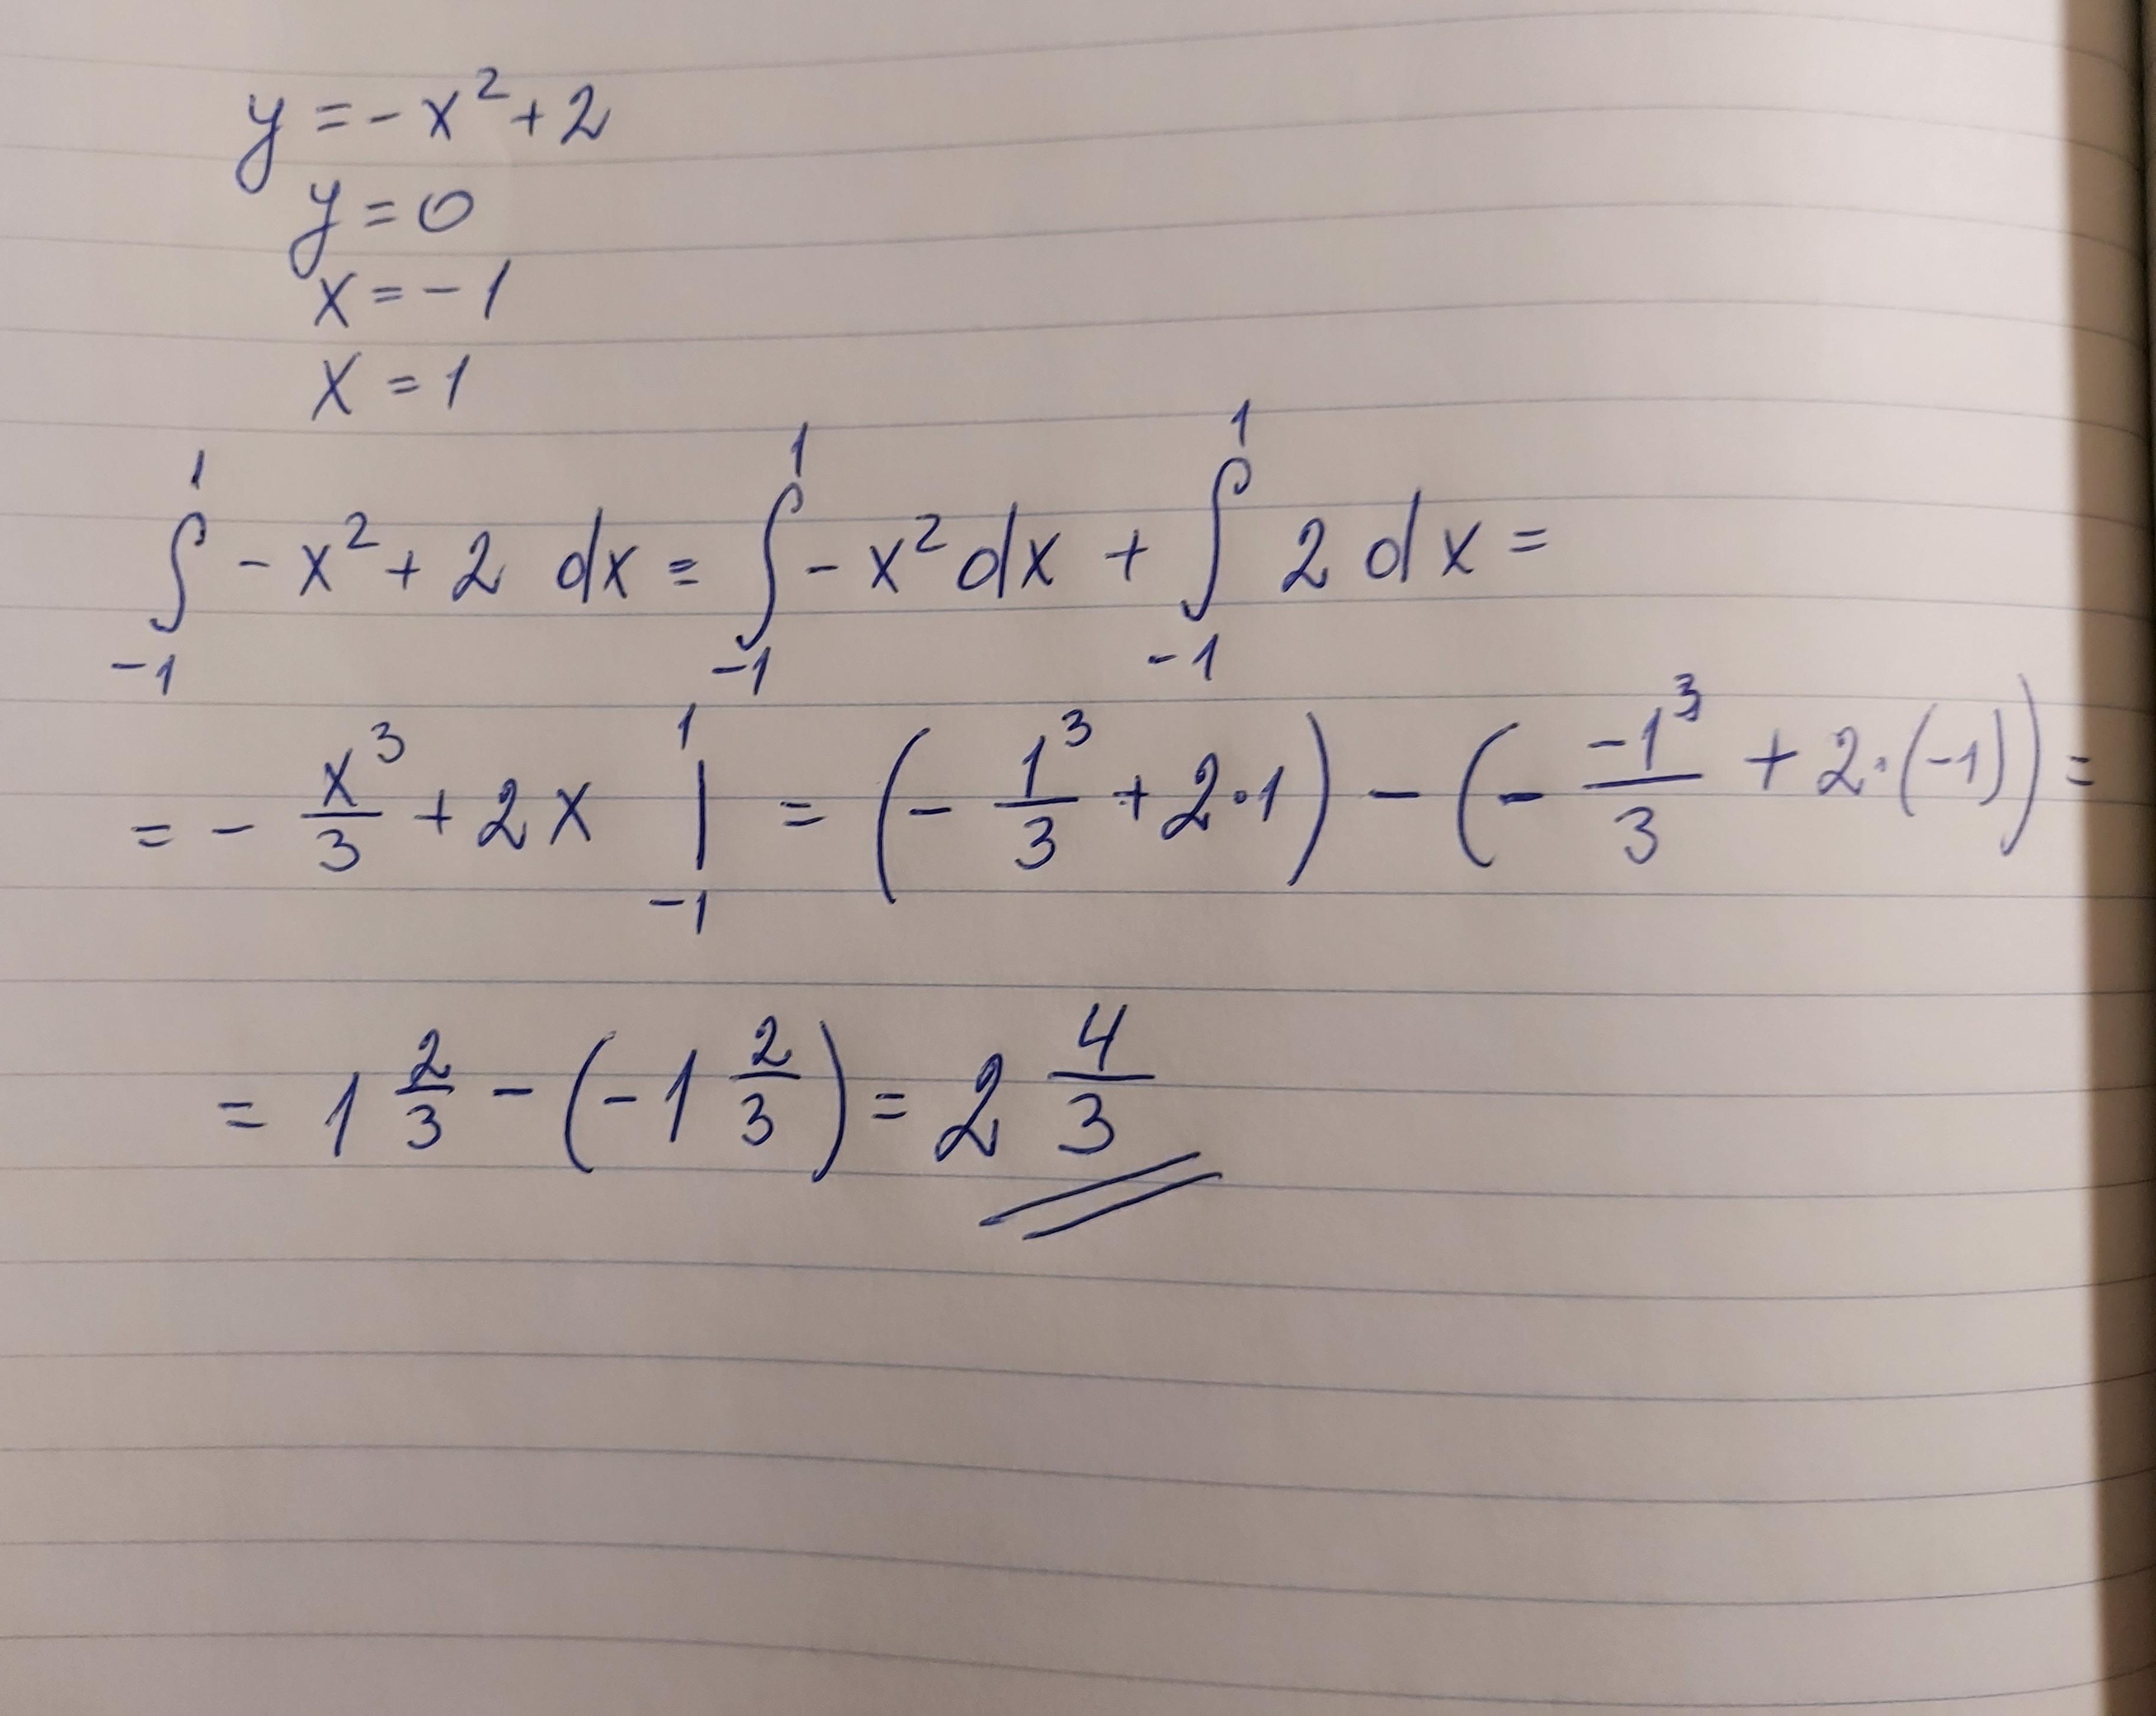 y = -x² + 2
y = 0
x = -1
x = 1
∫₋₁¹ -x² + 2 dx = ∫₋₁¹ -x² dx + ∫₋₁¹ 2 dx =
= - x³/3 + 2x |₋₁¹ = (- 1³/3 + 2·1) - (- -1³/3 + 2·(-1)) =
= 1 2/3 - (-1 2/3) = 2 4/3